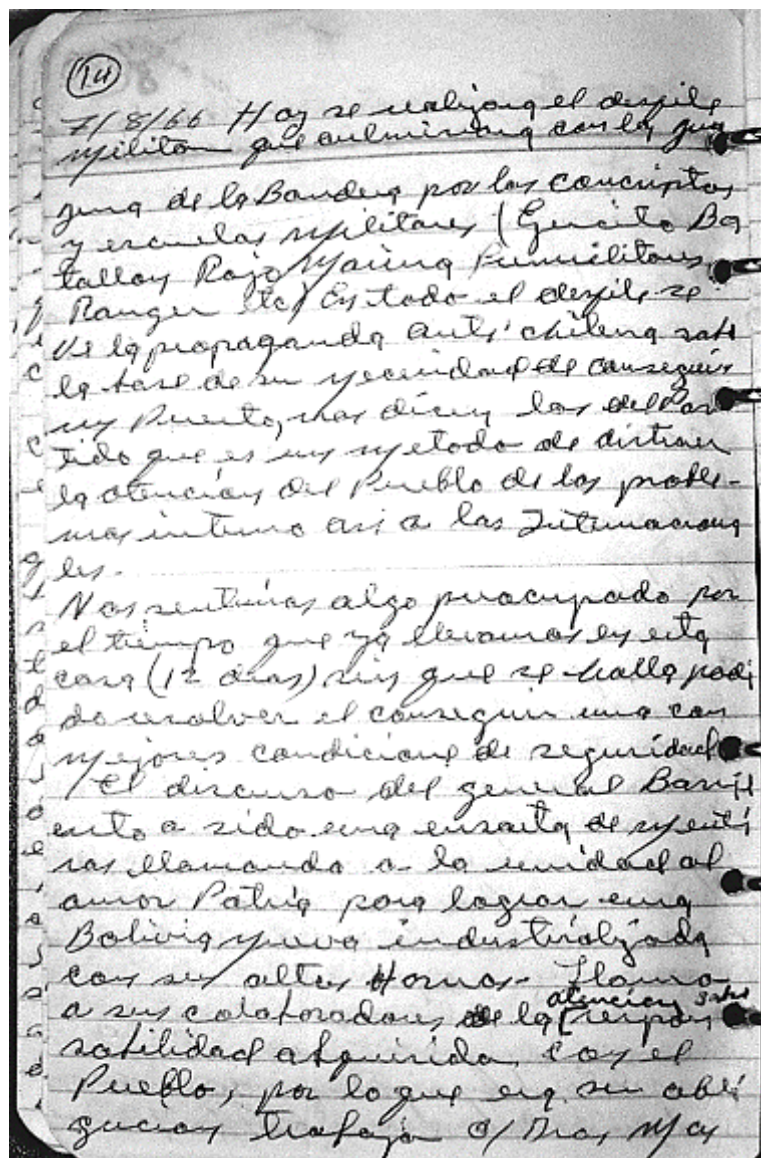 14
7/8/66 Hoy se realizara el desfile
Militar que culminara con la jura
jura de la Bandera por los concriptos
y escuelas Militares (Ejercito Ba
tallon Rojo Marina Pumilitares
Ranger etc) En todo el desfile se
ve la propaganda anti chilena sobre
la base de su necesidad de conseguir
un Puerto, mas dicen los del Par
tido que es un metodo de distraer
la atencion del Pueblo de los proble-
mas interno asi a las Internaciona
les.-
Nos sentimos algo preocupado por
el tiempo que ya llevamos en esta
casa (12 dias) sin que se halla podi
do resolver el conseguir una con
mejores condicione de seguridad
El discurso del general Barri
ento a sido una ensarta de menti
ras llamando a la unidad al
amor Patria para lograr una
Bolivia nueva industrialijada
con sus altos Hornos- Llamo
a sus colaboradores de la atencion sobre
respon
sabilidad adquirida con el
Pueblo, por lo que era su obli
gacion trabajar